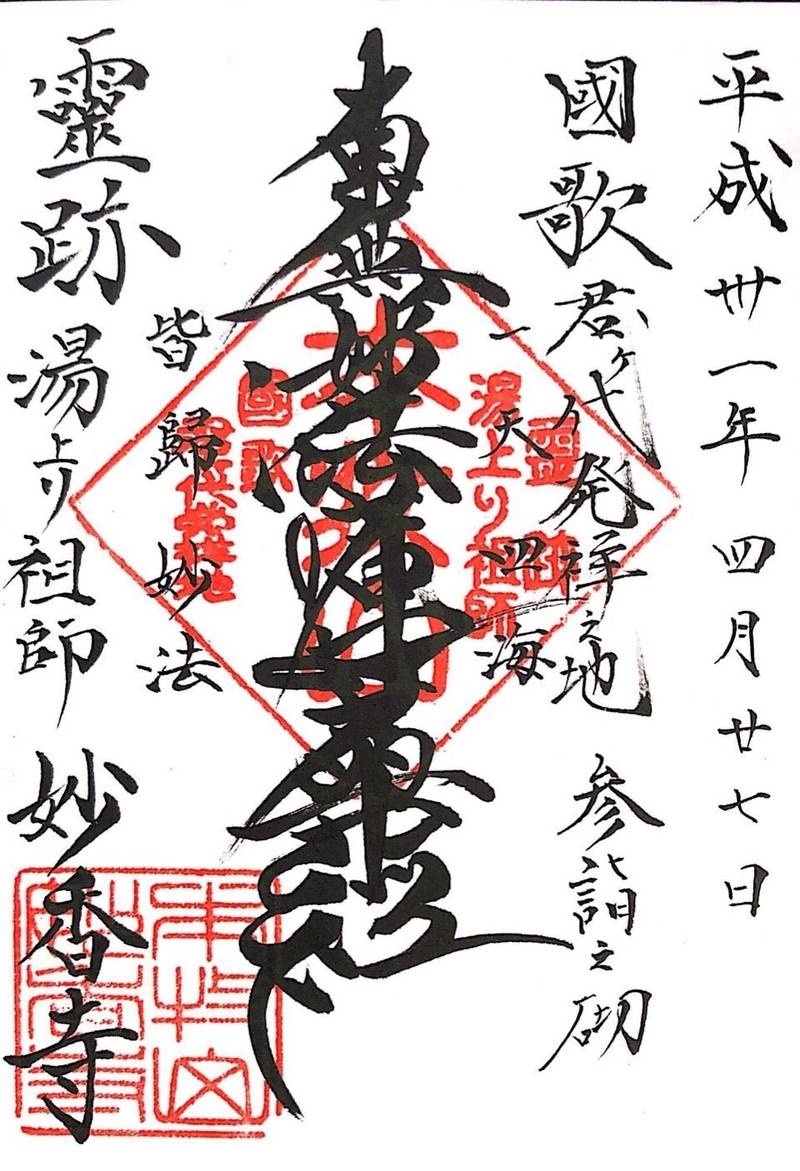 平成卅一年四月廿七日
國歌君ヶ代発祥之地 参詣之砌
一天四海
南無妙法蓮華経
皆歸妙法
靈跡 湯上り祖師 妙香寺
湯上り祖師
國歌